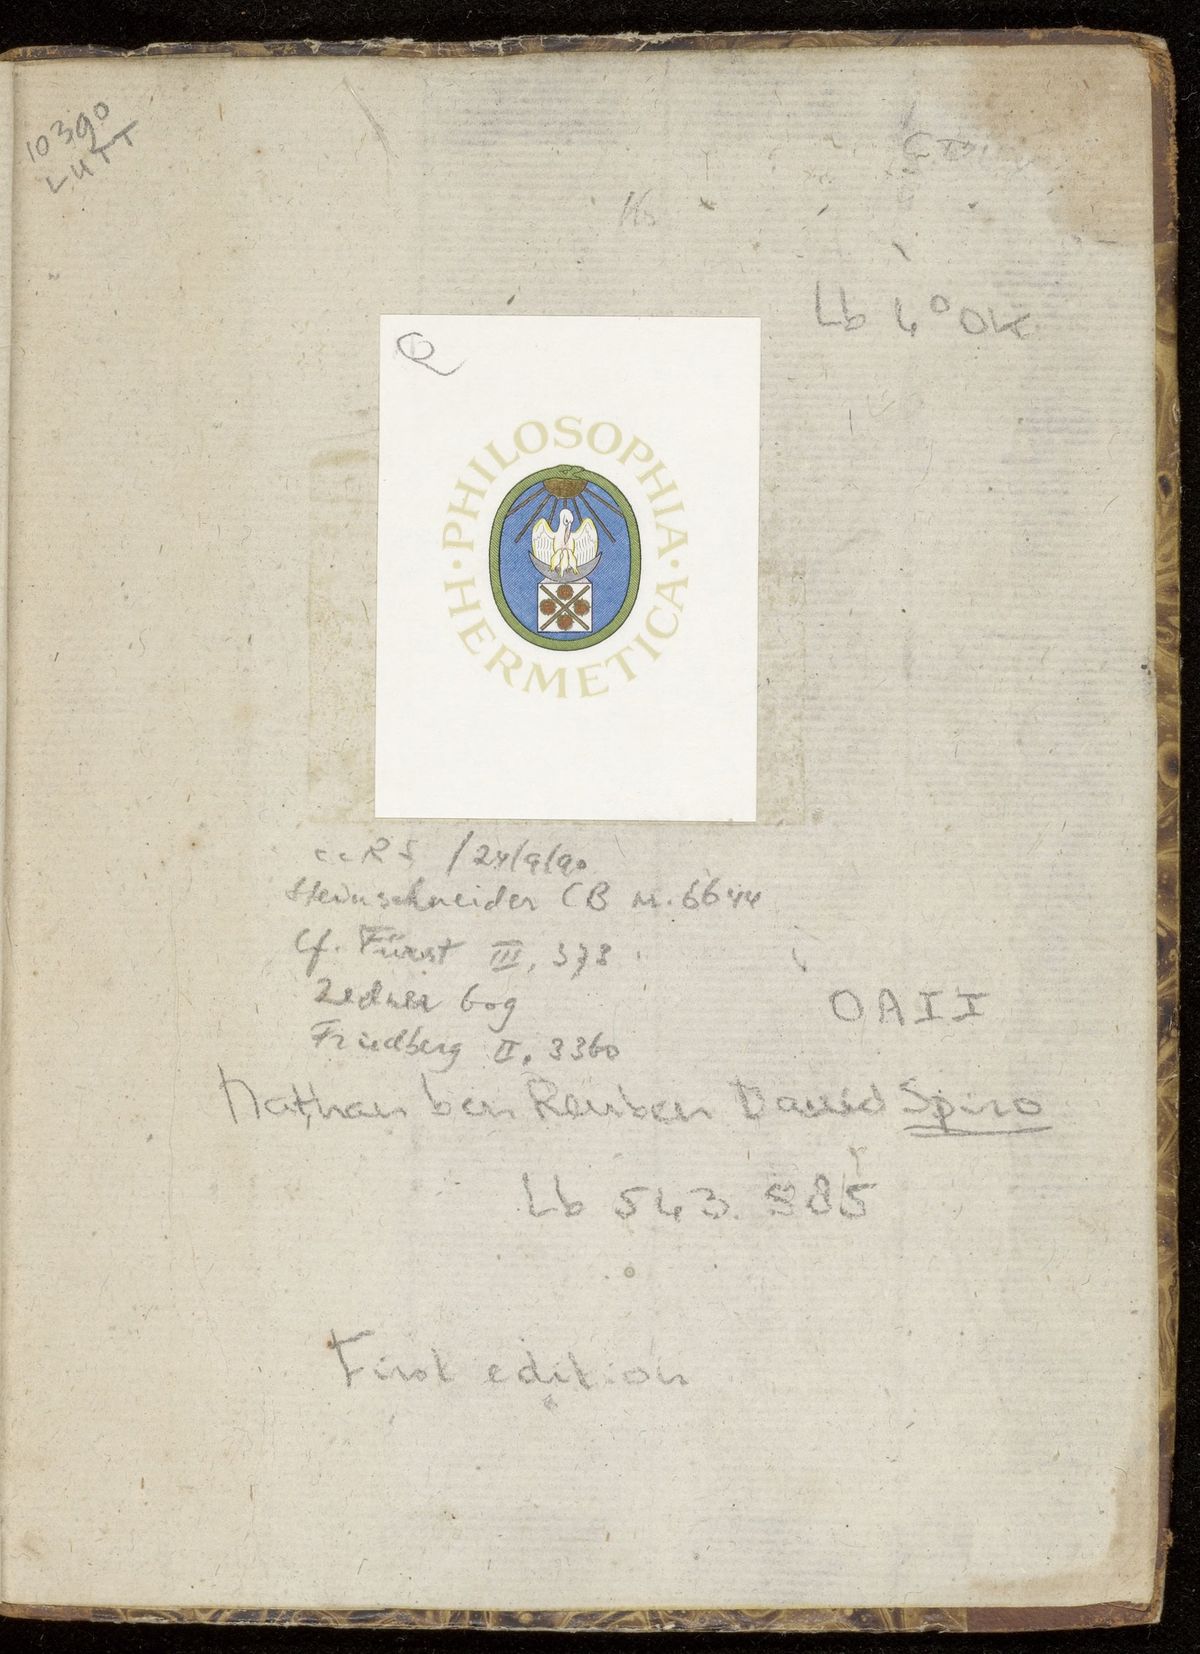 10390
LUTT
Lb 4° OK
PHILOSOPHIA · HERMETICA ·
/24/9/90
Steinschneider CB nr. 6644
Cf. Fürst III, 378
Zedner 609
Friedberg II, 3360
OAII
Nathan ben Reuben David Spiro
Lb 543. 885
First edition